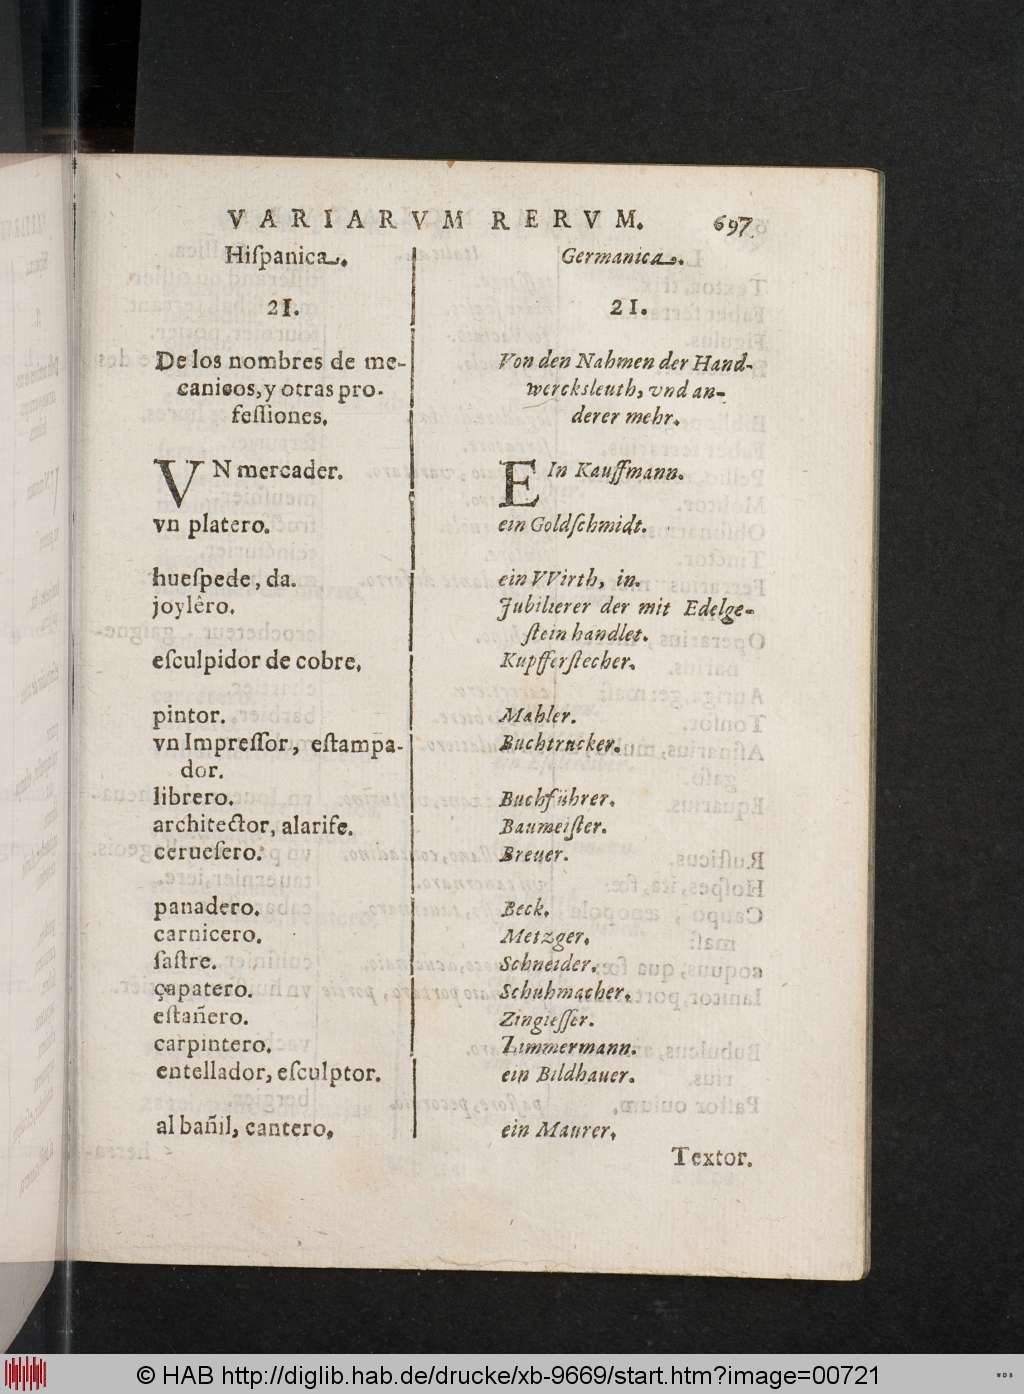 VARIARVM RERVM. 697
Hiſpanica.
21.
De los nombres de me-
canicos, y otras pro-
feſſiones.
VN mercader.
vn platero.
hueſpede, da.
joylêro.
eſculpidor de cobre.
pintor.
vn Impreſſor, eſtampa-
dor.
librero.
architector, alarife.
ceruesero.
panadero.
carnicero.
ſaſtre.
çapatero.
eſtañero.
carpintero.
entellador, eſculptor.
al bañil, cantero,
Germanica.
21.
Von den Nahmen der Hand-
wercksleuth, vnd an-
derer mehr.
EIn Kauffmann.
ein Goldſchmidt.
ein VVirth, in.
Jubilierer der mit Edelge-
ſtein handlet.
Kupfferſtecher.
Mahler.
Buchtrucker.
Buchführer.
Baumeiſter.
Breuer.
Beck.
Metzger.
Schneider.
Schuhmacher.
Zingieſſer.
Zimmermann.
ein Bildhauer.
ein Maurer.
Textor.
© HAB http://diglib.hab.de/drucke/xb-9669/start.htm?image=00721